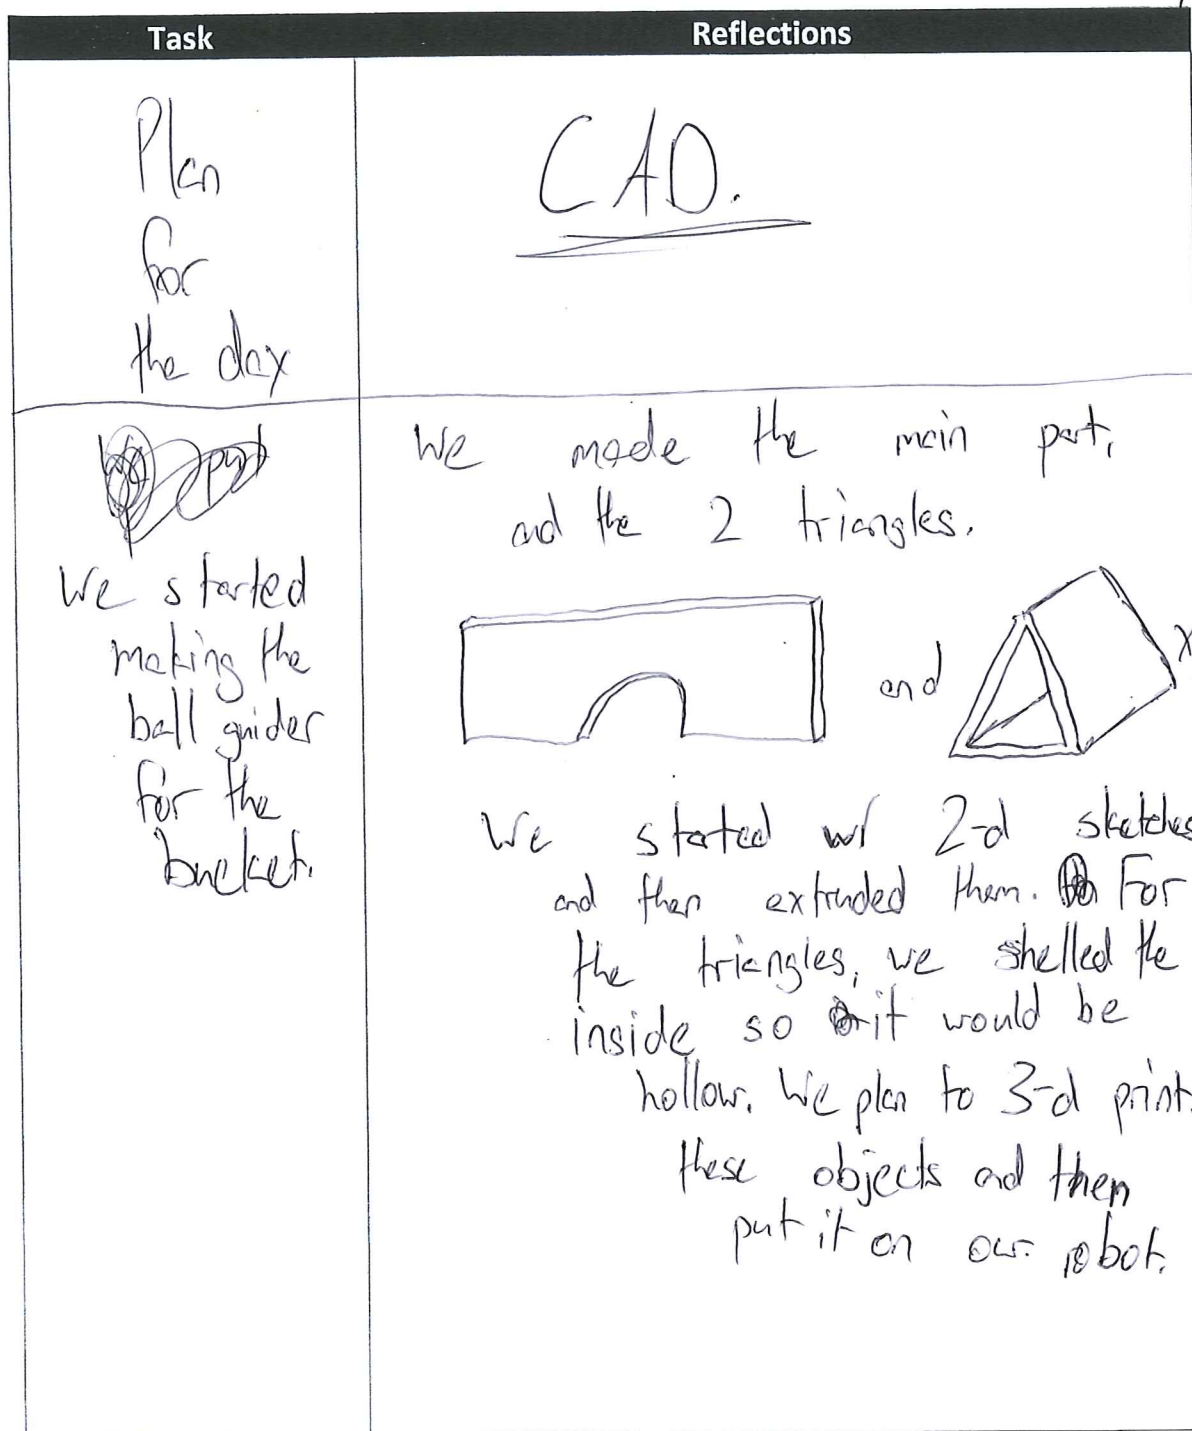 Task
Reflections
Plan
for
the day
CAD.
We started
making the
ball guider
for the
bucket.
We made the main part,
and the 2 triangles.
and
x
We started w/ 2-d sketches
and then extruded them. For
the triangles, we shelled the
inside so it would be
hollow. We plan to 3-d print
these objects and then
put it on our robot.